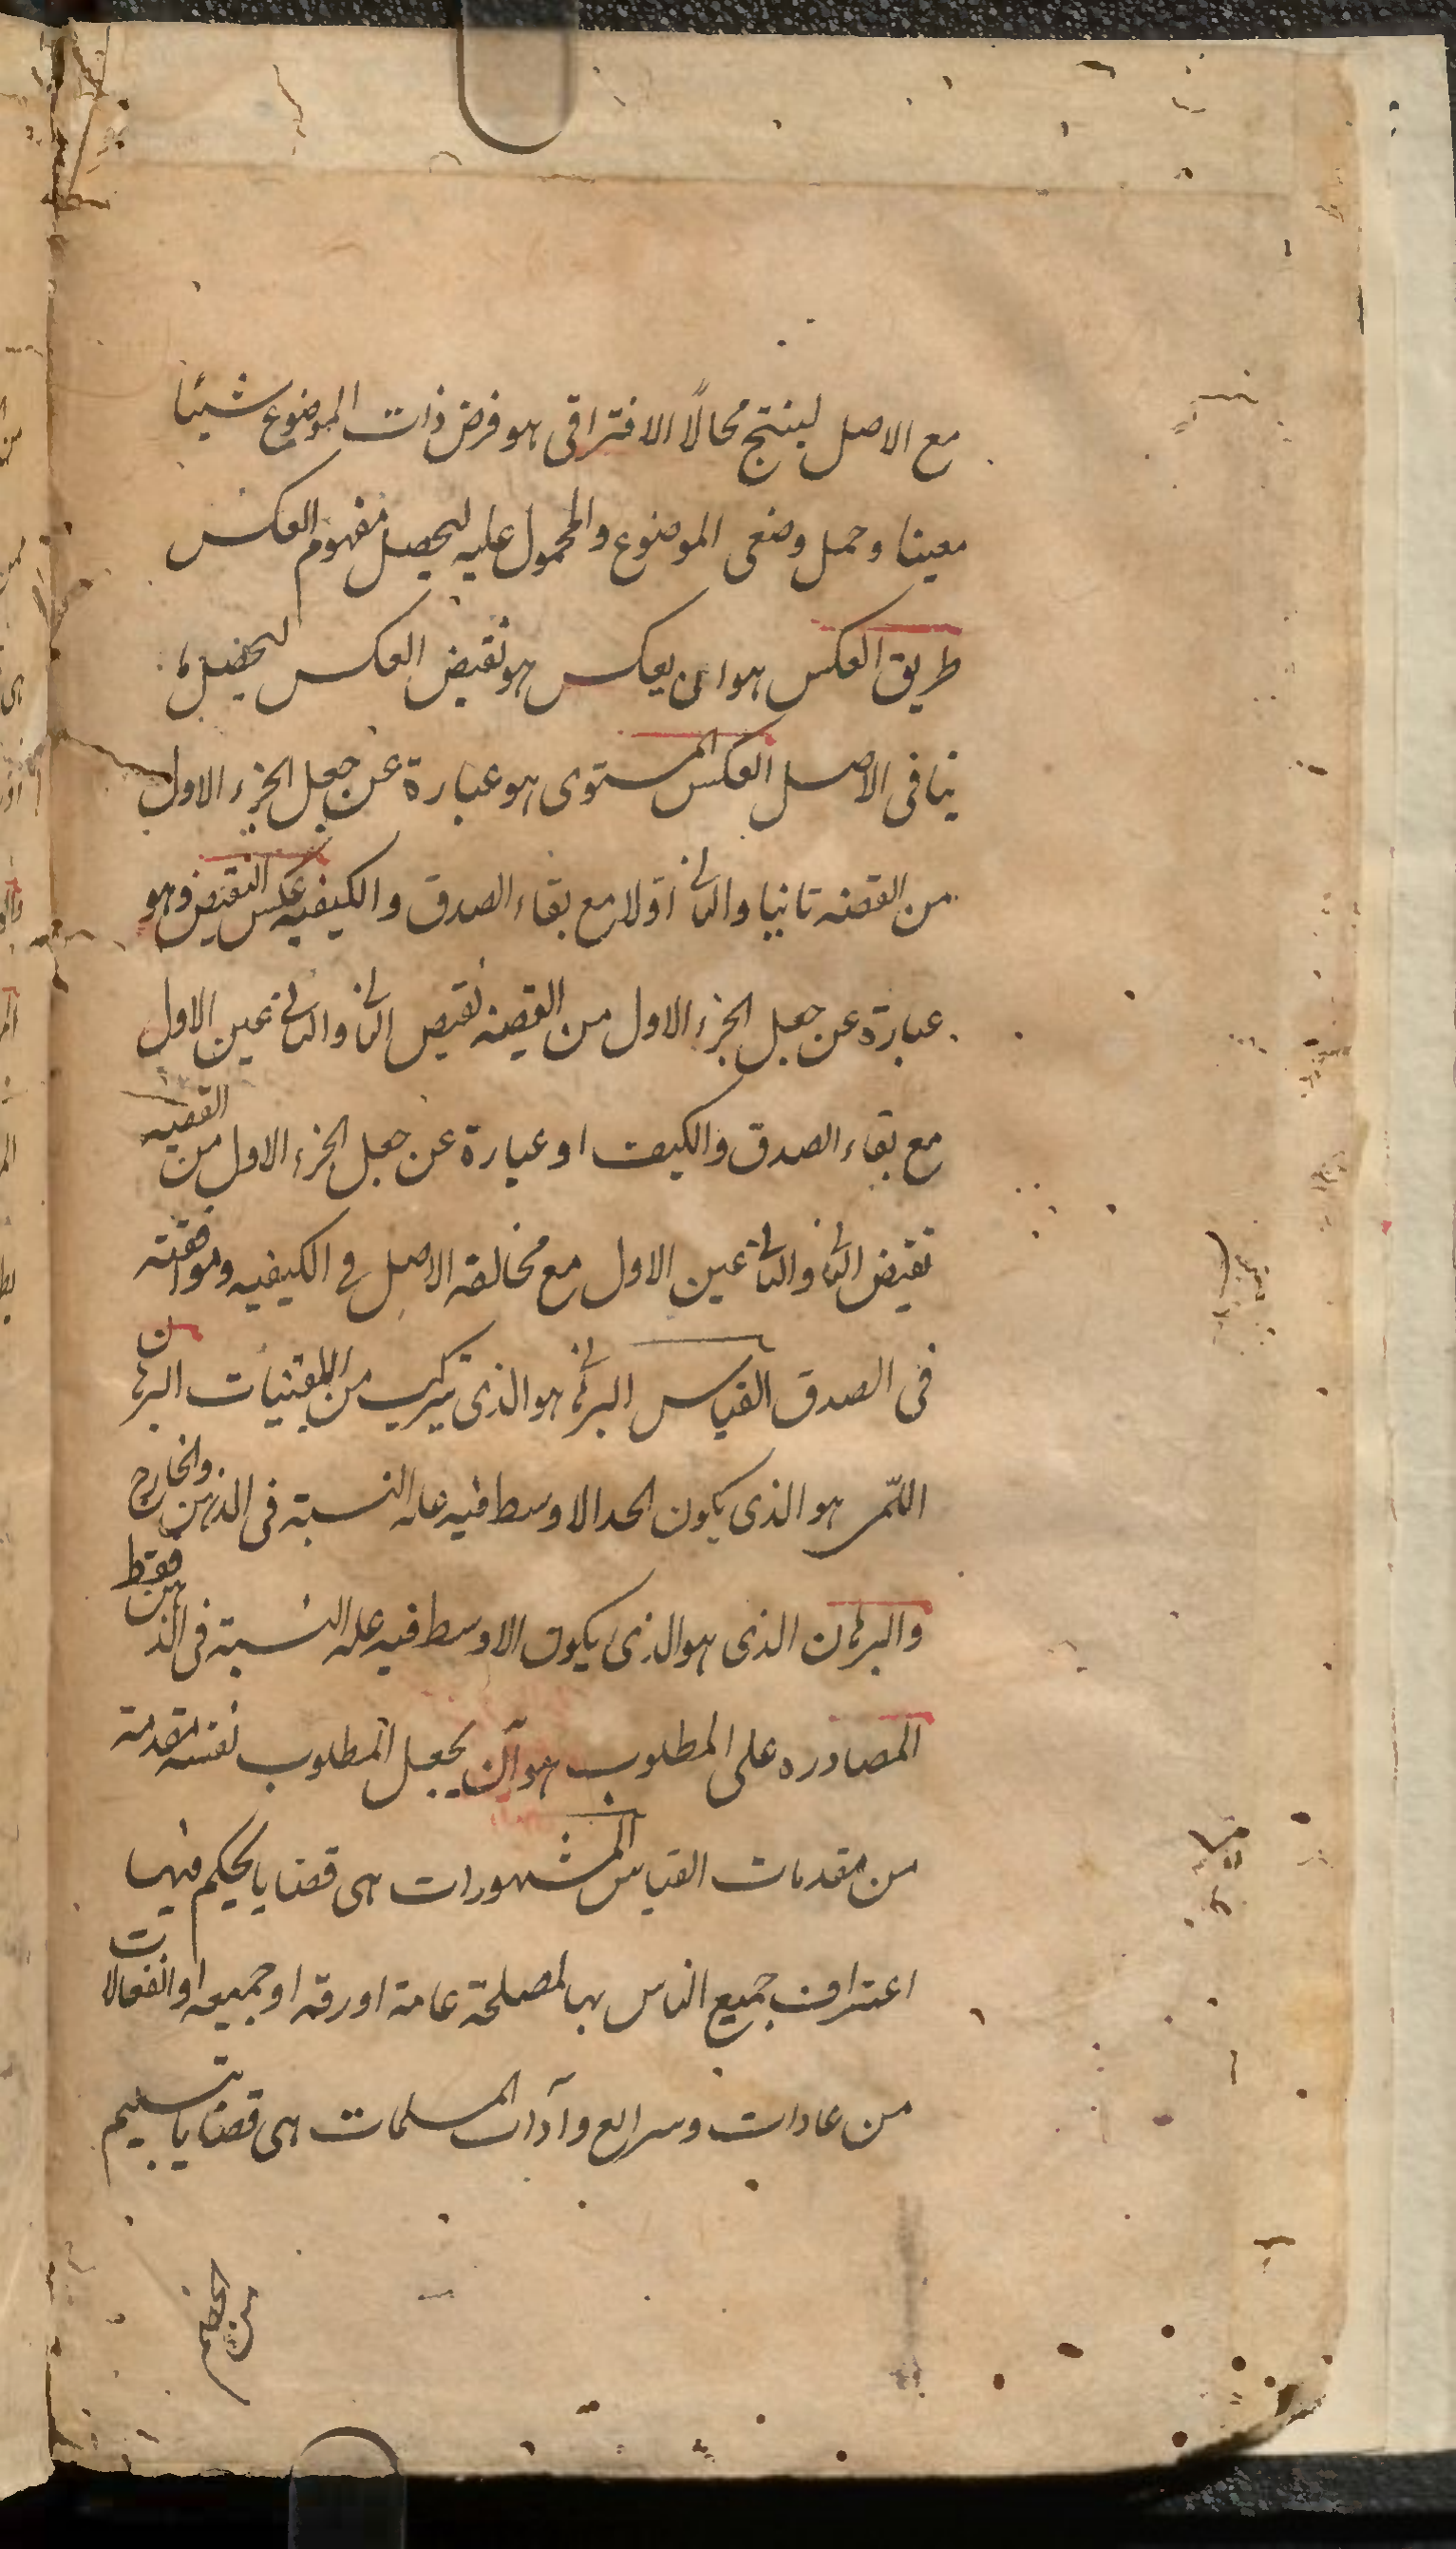 مع الاصل لينتج محالًا الافتراقى هو فرض ذات الموضوع شيئا
معينا وحمل وصفى الموضوع والمحمول عليه ليحصل مفهوم العكس
طريق العكس هو ان يعكس هو نقيض العكس ليحصل ما
ينافى الاصل العكس المستوى هو عبارة عن جعل الجزء الاول
من القضيه ثانيا والثانى اولا مع بقاء الصدق والكيفيه عكس النقيض وهو
عبارة عن جعل الجزء الاول من القضيه نقيض الثانى والثانى عين الاول
مع بقاء الصدق والكيف او عبارة عن جعل الجزء الاول من القضيه
نقيض الثانى والثانى عين الاول مع مخالفة الاصل فى الكيفيه وموافقته
فى الصدق القياس البرهانى هو الذى يتركب من اليقينيات البرهان
اللمّى هو الذى يكون الحد الاوسط فيه علة النسبة فى الذهن والخارج
والبرهان الذى هو الذى يكون الاوسط فيه علة النسبة فى الذهن فقط
المصادره على المطلوب هو ان يجعل المطلوب نفسه مقدمة
من مقدمات القياس المشهورات هى قضايا يحكم فيها
اعتراف جميع الناس بها لمصلحة عامة او رقه او حميه او انفعالات
من عادات وسرايع وآداب المسلمات هى قضايا تسليم
من الخصم